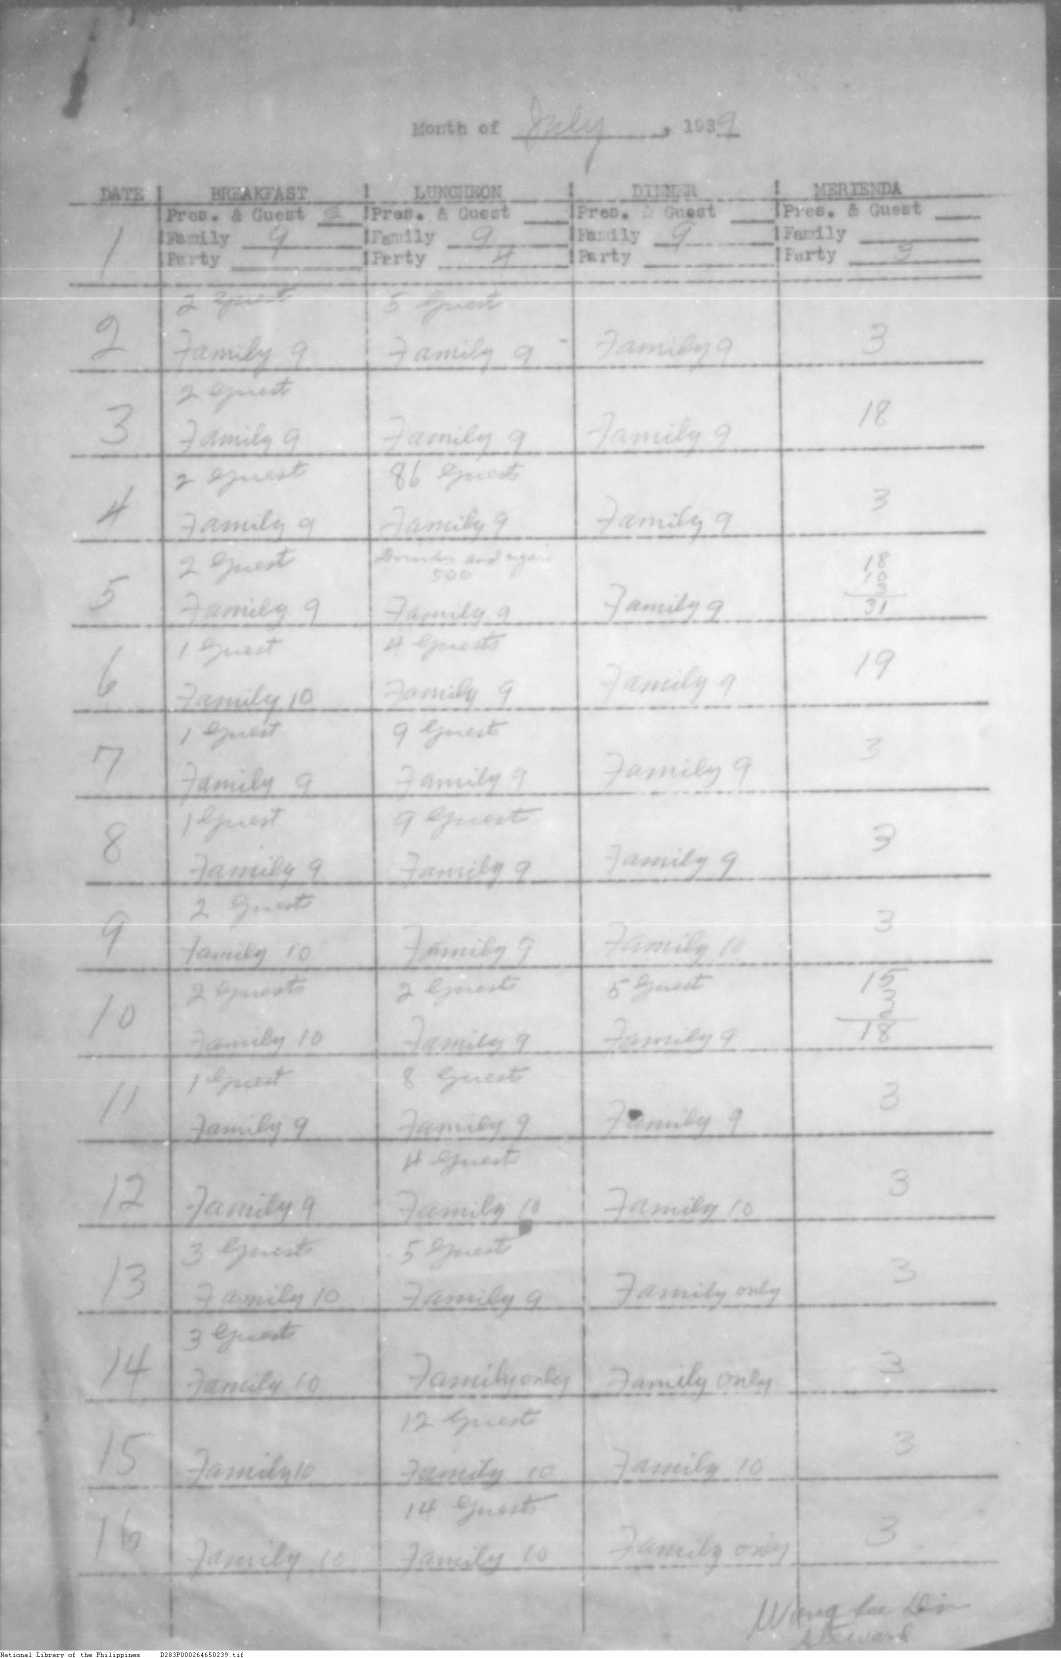 Month of July, 1939
DATE BREAKFAST LUNCHEON DINNER MERIENDA
1
Pres. & Guest Pres. & Guest Pres. & Guest Pres. & Guest
Family 9 Family 9 Family 9 Family
Party Party 4 Party Party 3
2 Guest 5 Guest
2 Family 9 Family 9 Family 9 3
2 Guest
3 Family 9 Family 9 Family 9 18
2 Guest 86 Guest
4 Family 9 Family 9 Family 9 3
2 Guest and 18
500 10
3
5 Family 9 Family 9 Family 9 31
1 Guest 4 Guests
6 Family 10 Family 9 Family 9 19
1 Guest 9 Guest
7 Family 9 Family 9 Family 9 3
1 Guest 9 Guest
8 Family 9 Family 9 Family 9 3
2 Guest
9 Family 10 Family 9 Family 10 3
2 Guests 2 Guests 5 Guest 15
3
10 Family 10 Family 9 Family 9 18
1 Guest 8 Guest
11 Family 9 Family 9 Family 9 3
4 Guest
12 Family 9 Family 10 Family 10 3
3 Guests 5 Guest
13 Family 10 Family 9 Family only 3
3 Guest
14 Family 10 Family only Family only 3
12 Guest
15 Family 10 Family 10 Family 10 3
14 Guests
16 Family 10 Family 10 Family only 3
Steward
National Library of the Philippines D283P000264650239.tif